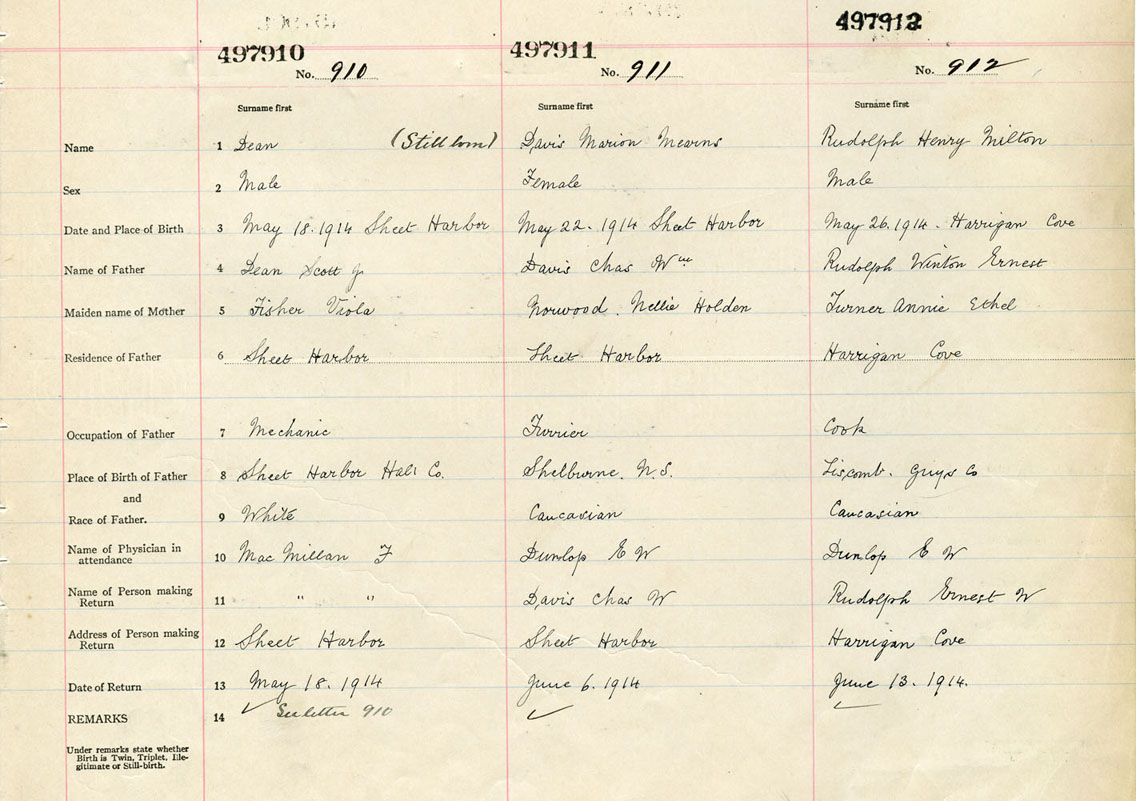 497910 497911 497912
No. 910 No. 911 No. 912
Surname first Surname first Surname first
Name 1 Dean (Stillborn) Davis Marion Mearns Rudolph Henry Milton
Sex 2 Male Female Male
Date and Place of Birth 3 May 18. 1914 Sheet Harbor May 22. 1914 Sheet Harbor May 26. 1914. Harrigan Cove
Name of Father 4 Dean Scott J Davis Chas Wm Rudolph Winton Ernest
Maiden name of Mother 5 Fisher Viola Norwood. Nellie Holden Turner Annie Ethel
Residence of Father 6 Sheet Harbor Sheet Harbor Harrigan Cove
Occupation of Father 7 Mechanic Furrier Cook
Place of Birth of Father 8 Sheet Harbor Hali Co. Shelburne. N.S. Liscomb. Guys Co
and
Race of Father. 9 White Caucasian Caucasian
Name of Physician in
attendance 10 MacMillan F Dunlop E W Dunlop E W
Name of Person making
Return 11 " " Davis Chas W Rudolph Ernest W
Address of Person making
Return 12 Sheet Harbor Sheet Harbor Harrigan Cove
Date of Return 13 May 18. 1914 June 6. 1914 June 13. 1914.
REMARKS 14 ✓ See letter 910 ✓ ✓
Under remarks state whether
Birth is Twin, Triplet, Ille-
gitimate or Still-birth.